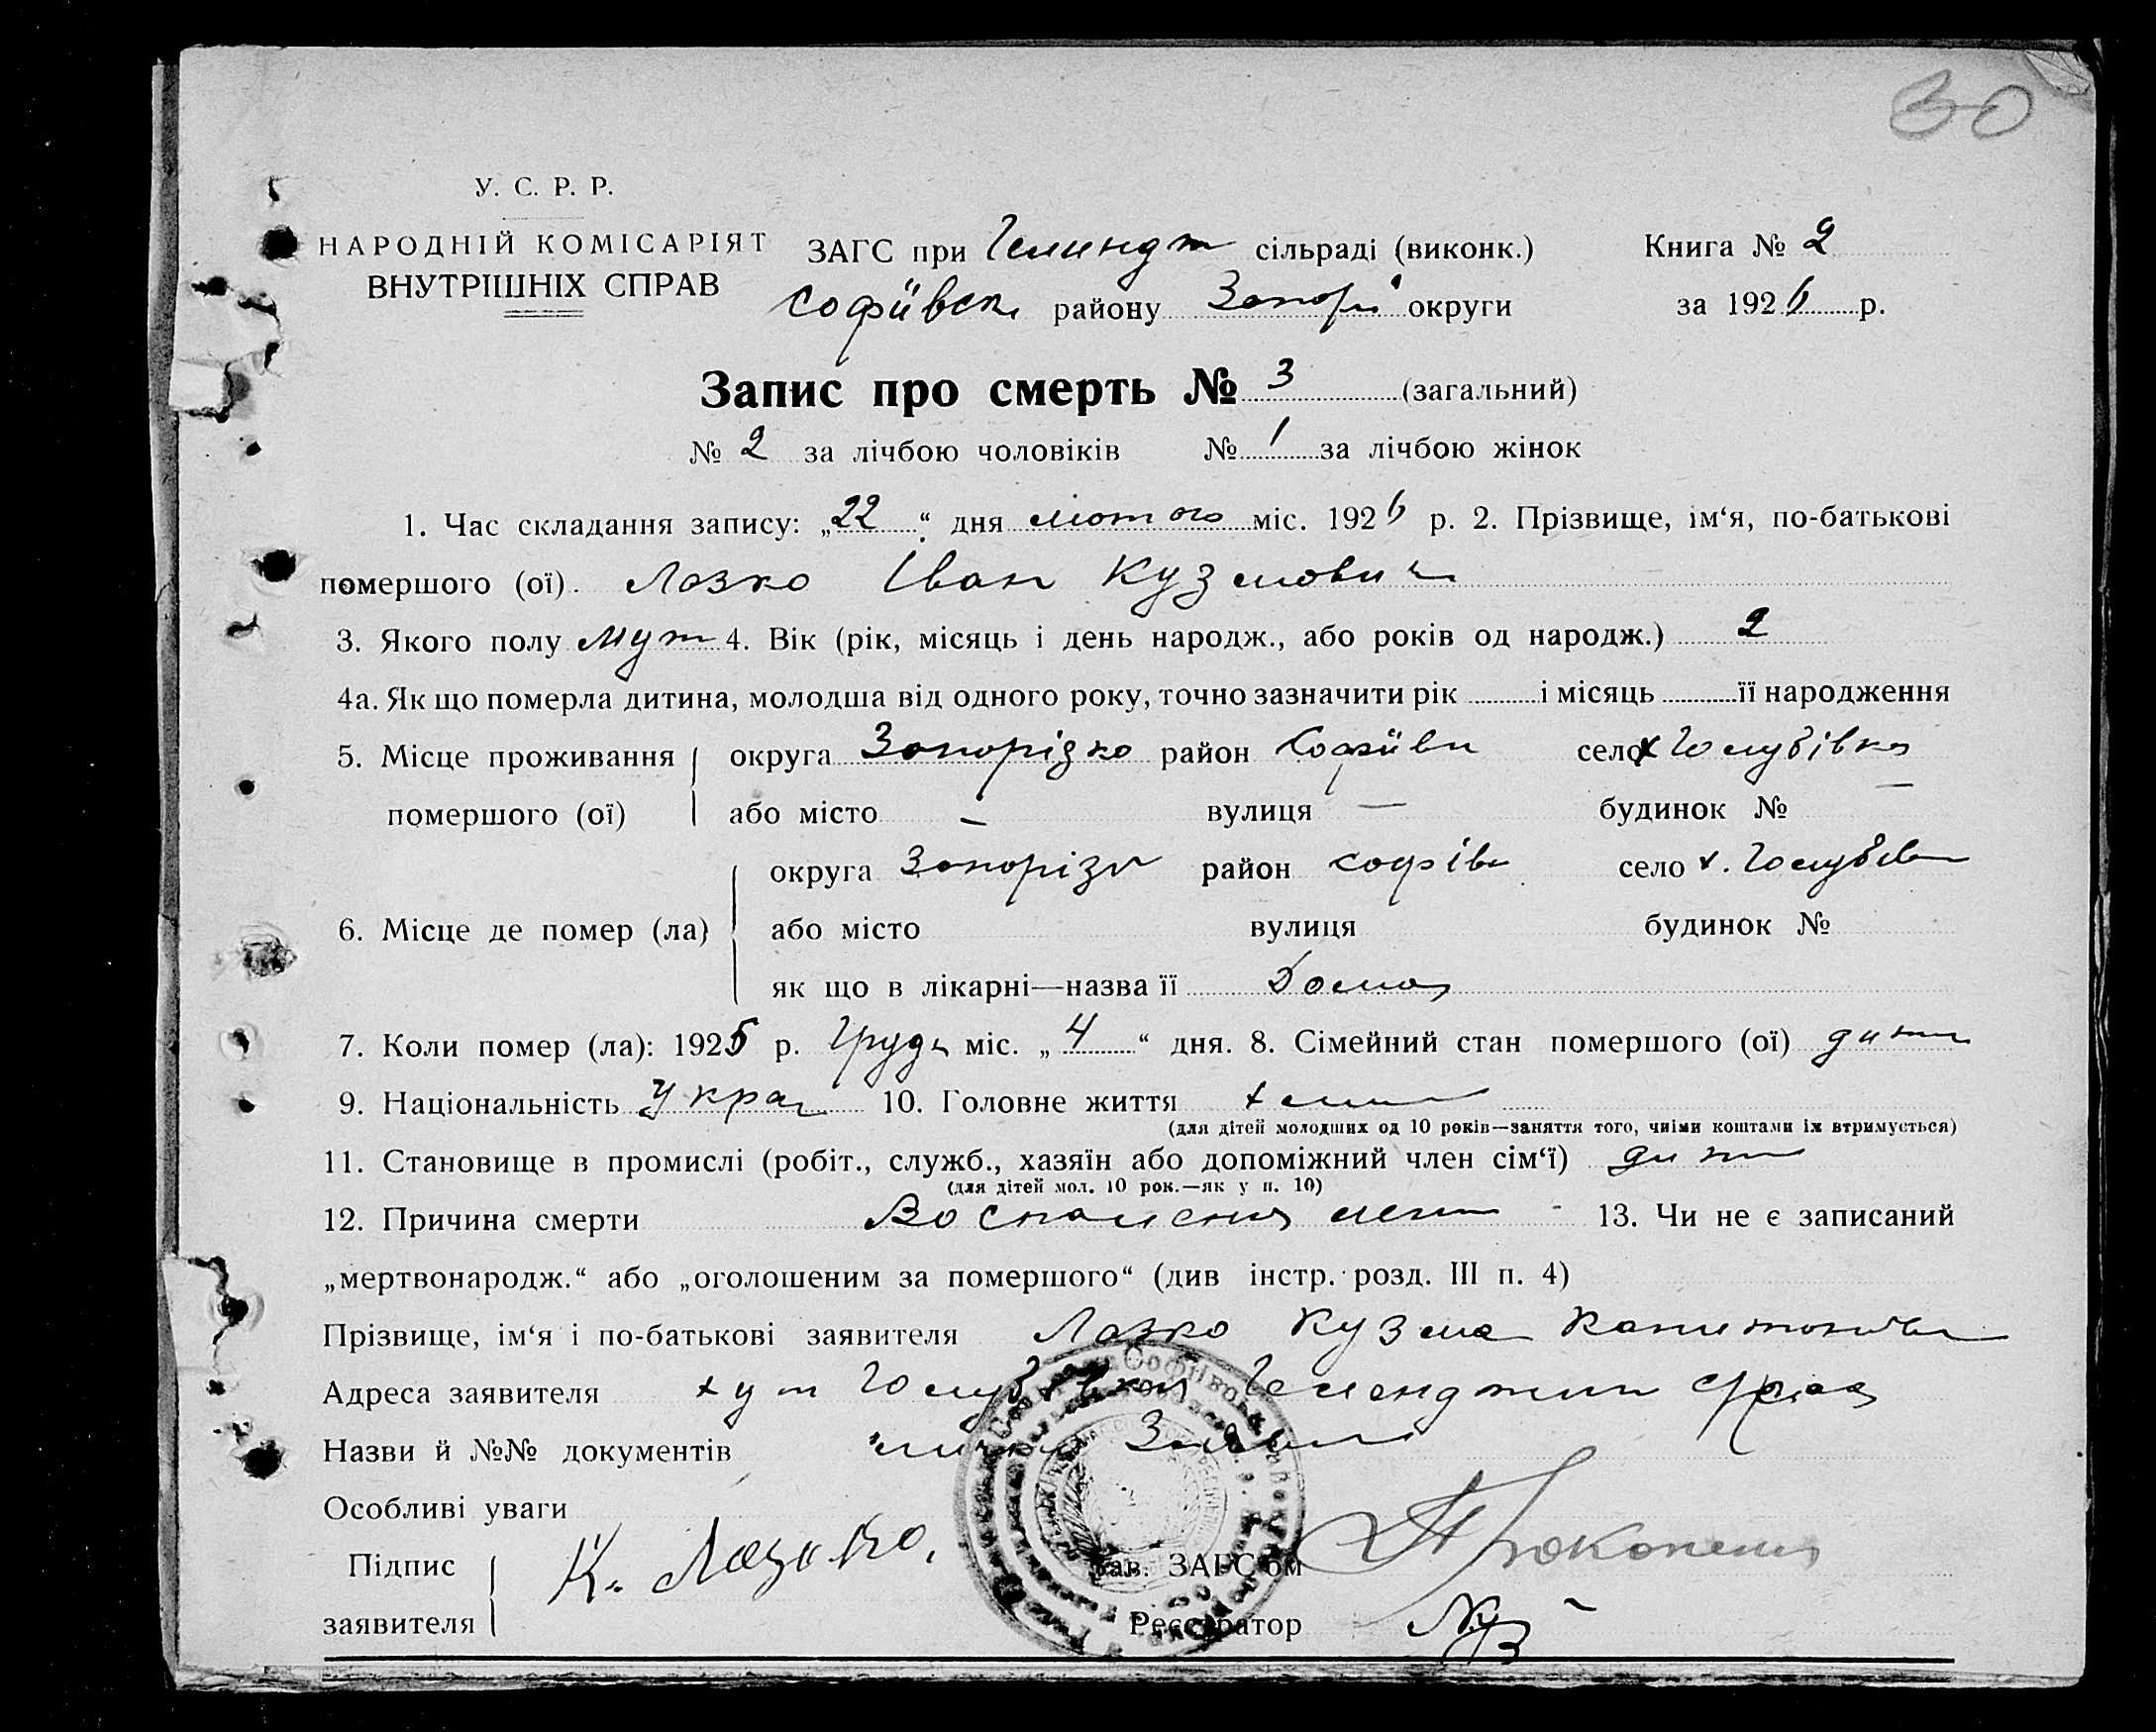 30
У. С. Р. Р.
НАРОДНІЙ КОМІСАРІЯТ
ВНУТРІШНІХ СПРАВ
ЗАГС при сільраді (виконк.) Книга № 2
Софіївськ району Запорі округи за 1926 р.
Запис про смерть № 3 (загальний)
№ 2 за лічбою чоловіків № 1 за лічбою жінок
1. Час складання запису: „22“ дня лютого міс. 1926 р. 2. Прізвище, ім‘я, по-батькові
помершого (ої). Лазко Іван Кузмович
3. Якого полу муж 4. Вік (рік, місяць і день народж., або років од народж.) 2
4а. Як що померла дитина, молодша від одного року, точно зазначити рік і місяць її народження
5. Місце проживання округа Запорізко район Софіїв село х Голубівка
помершого (ої) або місто — вулиця — будинок № —
округа Запоріз район Софіїв село х. Голубів
6. Місце де помер (ла) або місто вулиця будинок №
як що в лікарні—назва її Дома
7. Коли помер (ла): 1925 р. Грудь міс. „4“ дня. 8. Сімейний стан помершого (ої) дитя
9. Національність Укра 10. Головне життя
(для дітей молодших од 10 років—заняття того, чиїми коштами їх втримується)
11. Становище в промислі (робіт., служб., хазяїн або допоміжний член сім‘ї) дитя
(для дітей мол. 10 рок.—як у п. 10)
12. Причина смерти Воспаления легк 13. Чи не є записаний
„мертвонародж.“ або „оголошеним за помершого“ (див інстр. розд. III п. 4)
Прізвище, ім‘я і по-батькові заявителя Лазко Кузма
Адреса заявителя хут Голубівка
Назви й №№ документів
Особливі уваги
Підпис
заявителя
К. Лазько.
Зав. ЗАГС‘ом
Реєстратор